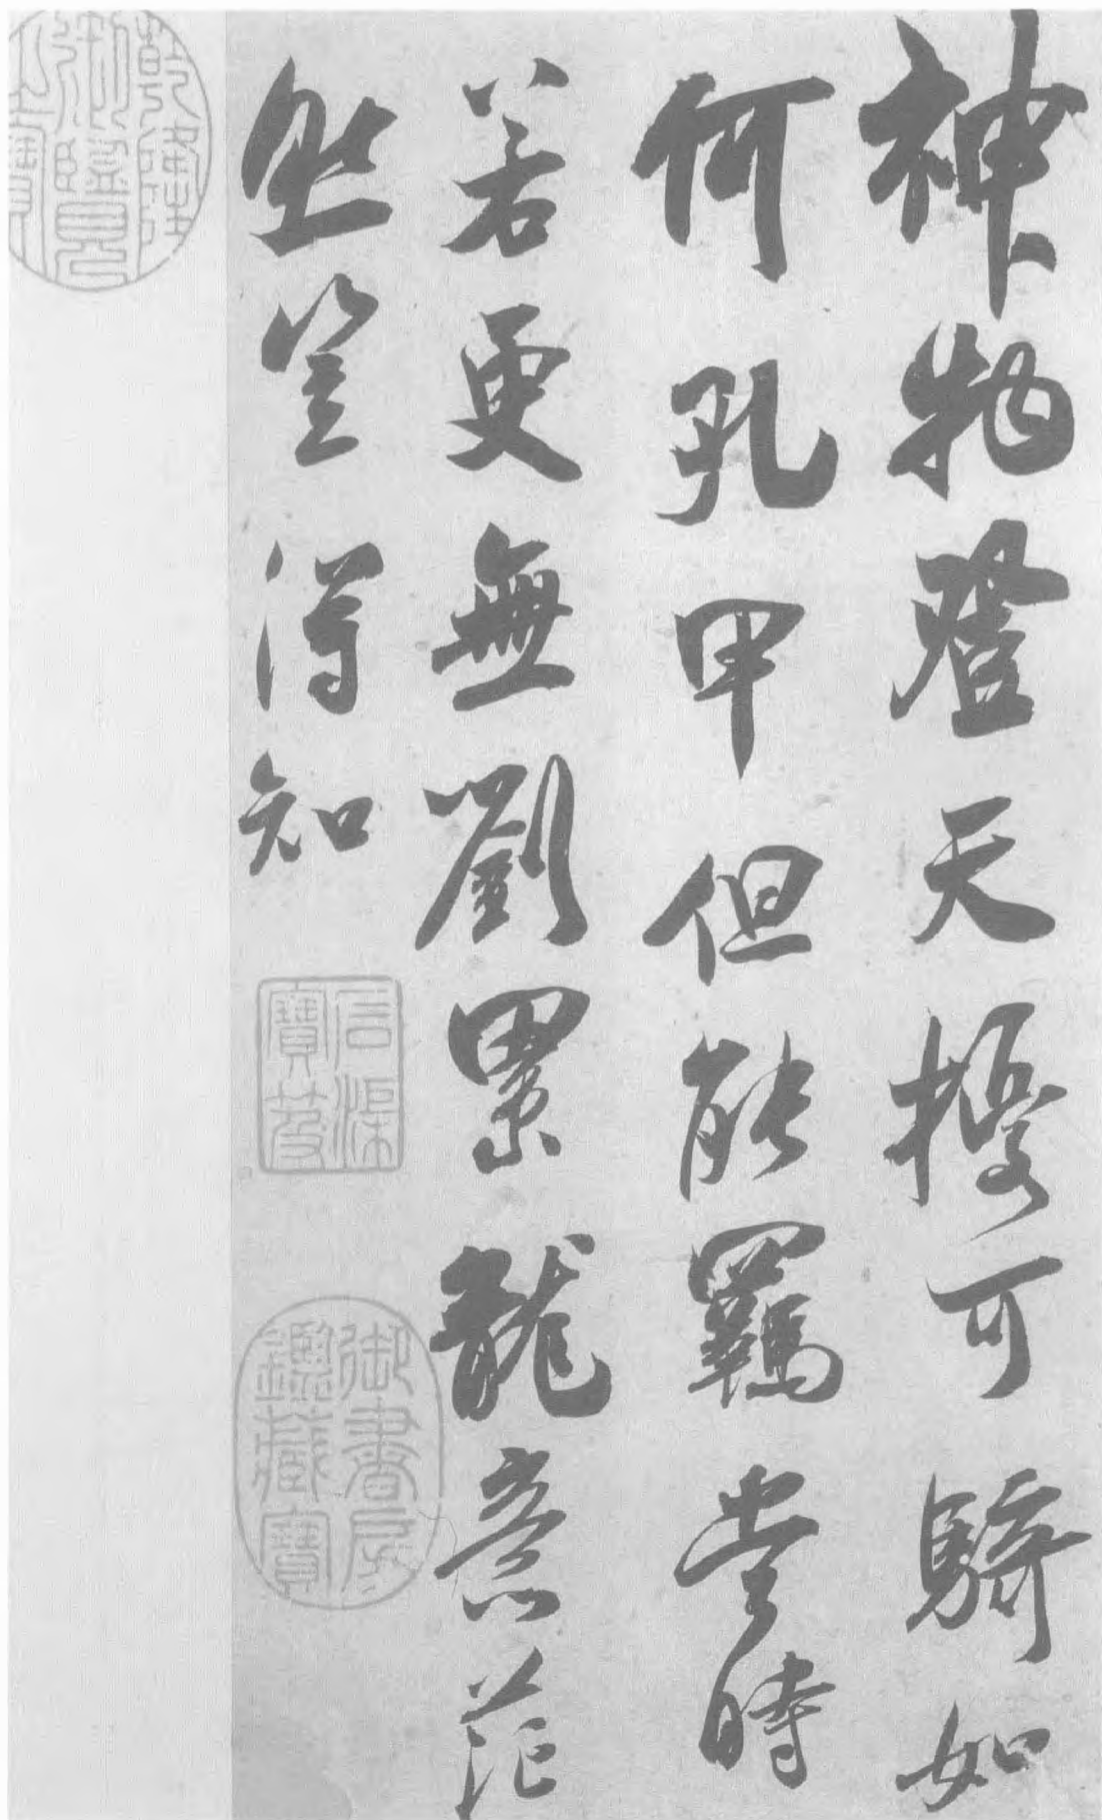 神物登天擾可騎如
何孔甲但能羈當時
若更無劉累龍意茫
然豈得知
石渠寶笈
御書房鑑藏寶
乾隆御覽之寶